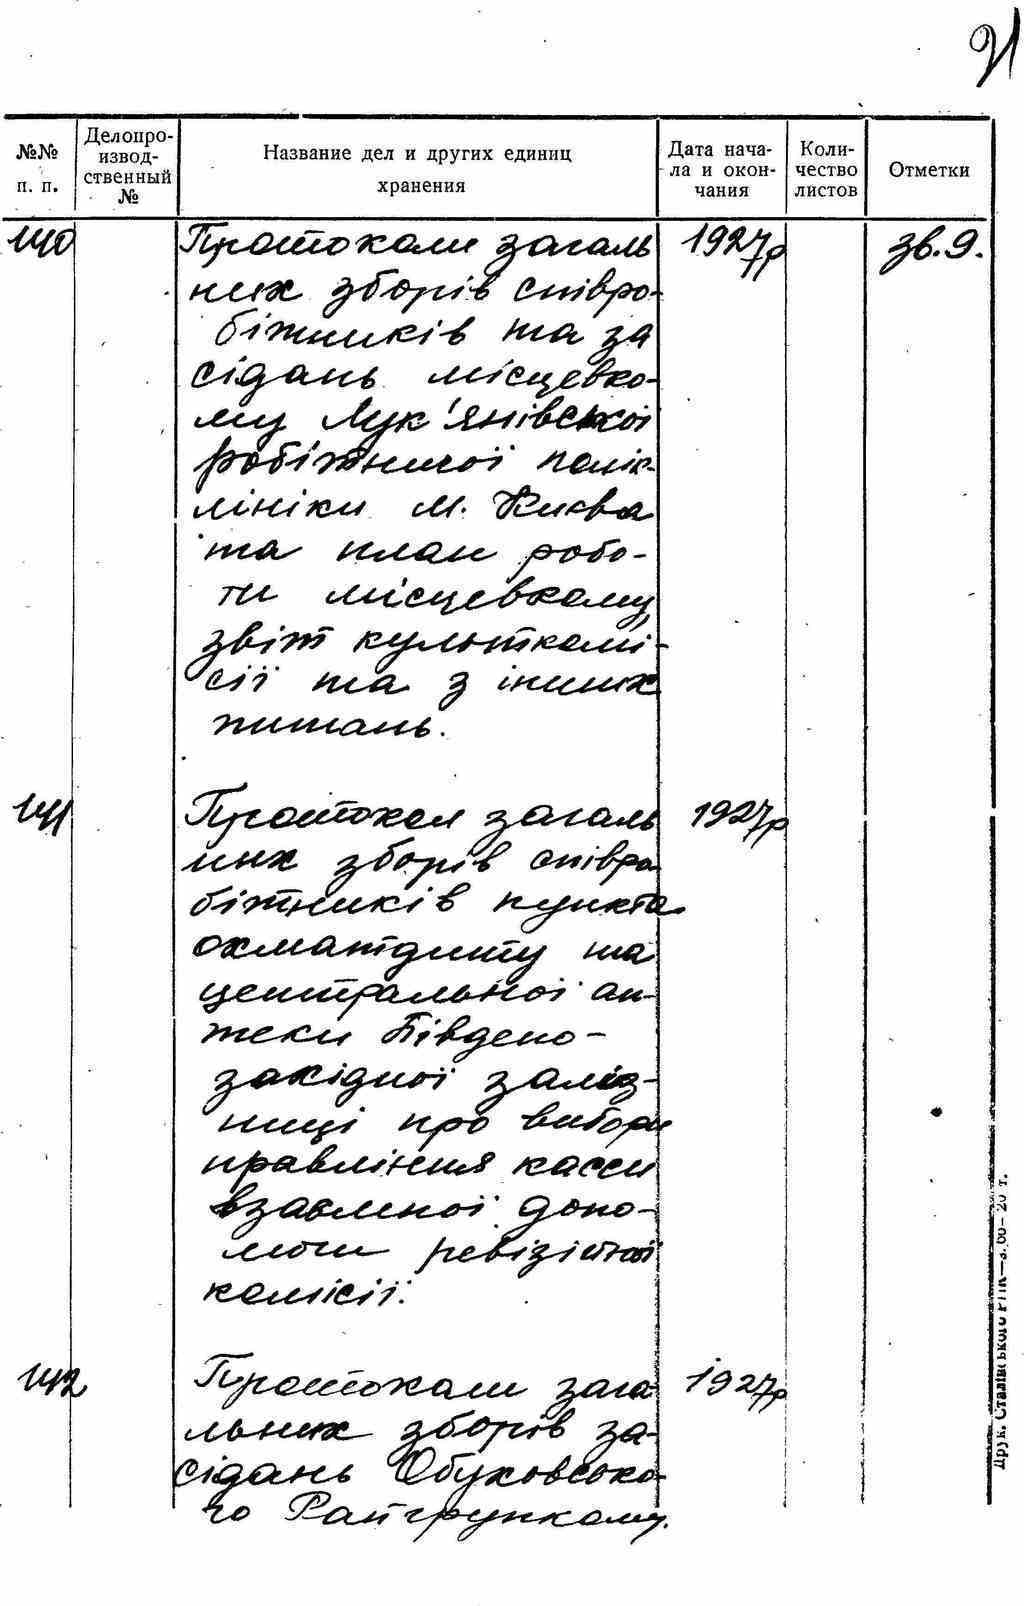 21
№№ п. п.
Делопро-
извод-
ственный
№
Название дел и других единиц
хранения
Дата нача-
ла и окон-
чания
Коли-
чество
листов
Отметки
140 Протоколи загаль 1927р зв. 9.
них зборів співро-
бітників та за
сідань місцевко-
му Лук'янівської
робітничої полік-
лініки м. Києва
та план робо-
ти місцевкому,
звіт культкомі-
сії та з інших
питань.
141 Протокол загаль 1927р
них зборів співро
бітників пункта
охматдиту та
центральної ап-
теки Південо-
західної заліз-
ниці про вибори
правління касси
взаємної допо-
моги ревізійної
комісії.
142 Протоколи зага 1927р
льних зборів за-
сідань Обуховсько-
го Райгрупкому.
Друк. Сталінського РПК—3.60— 20 т.